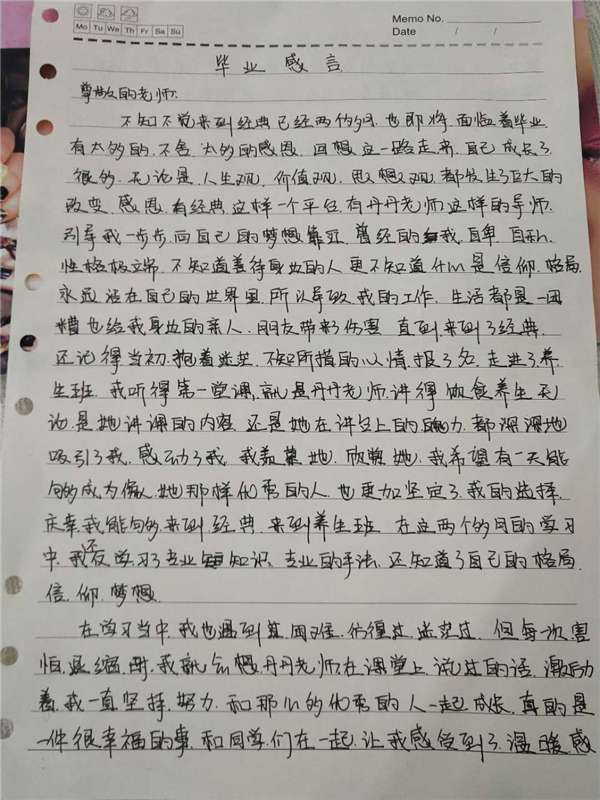 Memo No.
Mo Tu We Th Fr Sa Su
Date / /
毕业感言
尊敬的老师.
不知不觉来到经典已经两个多月.也即将面临着毕业
有太多的不舍.太多的感恩.回想这一路走来.自己成长了
很多.无论是人生观.价值观.思想观.都发生了巨大的
改变.感恩.有经典这样一个平台.有丹丹老师这样的导师.
引导我一步步向自己的梦想靠近.曾经的我.自卑.自私.
性格极端.不知道善待身边的人更不知道什么是信仰.格局.
永远活在自己的世界里.所以导致我的工作.生活都是一团
糟也给我身边的亲人.朋友带来了伤害.直到来到了经典.
还记得当初.抱着迷茫.不知所措的心情.报了名.走进了养
生班.我听得第一堂课.就是丹丹老师.讲得饮食养生.无
论是她讲课的内容.还是她在讲台上的魄力.都深深地
吸引了我.感动了我.我羡慕她.欣赏她.我希望有一天能
够成为像她那样优秀的人.也更加坚定了我的选择.
庆幸我能够来到经典.来到养生班.在这两个多月的学习
中.我不仅学习了专业知识.专业的手法.还知道了自己的格局.
信仰.梦想.
在学习当中.我也遇到过困难.彷徨过.迷茫过.但每一次害
怕.退缩时.我就会想丹丹老师在课堂上.说过的话.激励
着我一直坚持.努力.和那么多优秀的人一起成长.真的是
一件很幸福的事.和同学们在一起.让我感受到了温暖感